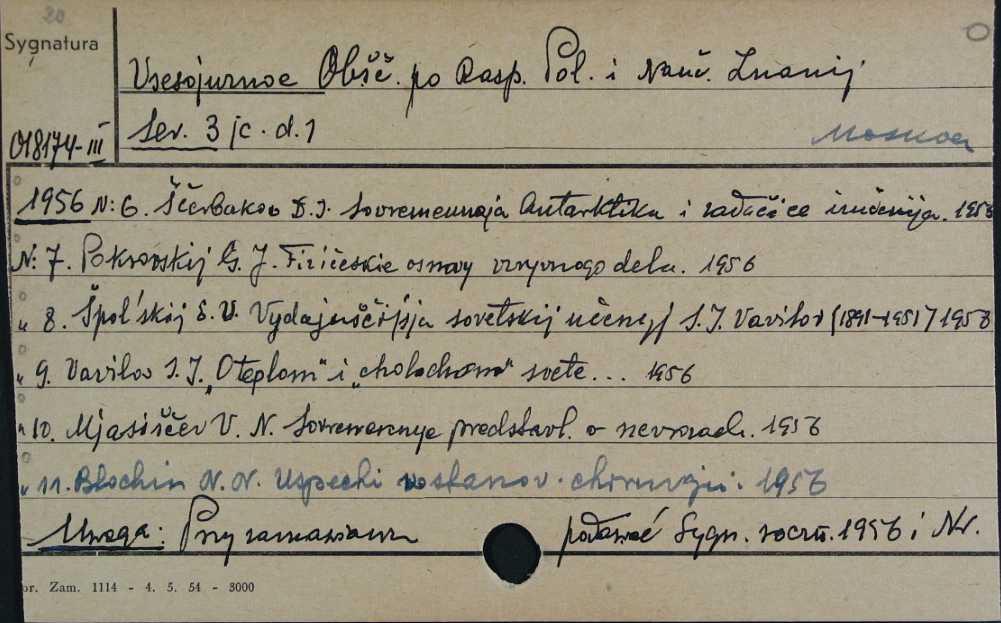 20
Sygnatura
Vsesojuznoe Obšč. po Rasp. Pol. i Nauč. Znanij
018174-III
Ser. 3 /c. d. 1
Moskva
1956 N: 6. Ščerbakov D. I. Sovremennaja Antarktika i zadači ee izučenija. 1956
N: 7. Pokrovskij G. J. Fizičeskie osnovy vzryvnogo dela. 1956
" 8. Špol'skij E. V. Vydajuščijsja sovetskij učenyj S. I. Vavilov (1891-1951) 1956
" 9. Vavilov S. I. "O teplom" i "cholodnom" svete... 1956
" 10. Mjasiščev V. N. Sovremennye predstavl. o nevrozach. 1956
" 11. Blochin N. N. Uspechi vosstanov. chirurgii. 1956
Uwaga: Przy zamawianiu podawać Sygn. roczn. 1956 i Nr.
or. Zam. 1114 - 4. 5. 54 - 3000